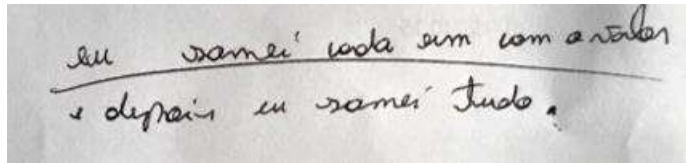 eu somei cada um com o valor
e depois eu somei tudo.